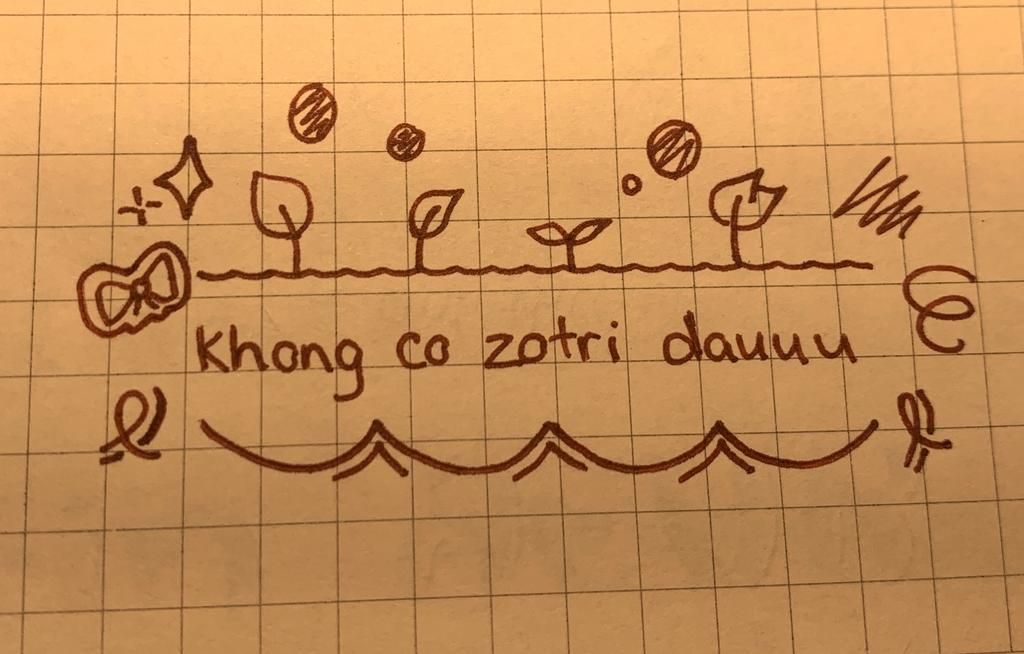 khong co zotri dauuu